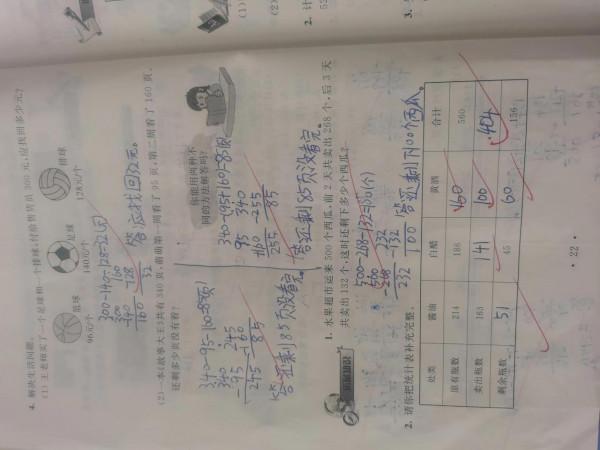 4. 解决生活问题。
(1) 王老师买了一个足球和一个排球,付给售货员 300 元,应找回多少元?
篮球 足球 排球
96元/个 140元/个 128元/个
300-140-128=32(元)
300
-140
160
160
-128
32
答应找回32元。
(2) 一本《故事大王》共有 340 页,萌萌第一周看了 95 页,第二周看了 160 页,
还剩多少页没有看?
你能用两种不
同的方法解答吗?
340-95-160=85(页)
340
-95
245
245
-160
85
答还剩85页没看完。
340-(95+160)=85(页)
95
+160
255
340
-255
85
答还剩85页没看完。
1. 水果超市运来 500 个西瓜,前 2 天共卖出 268 个,后 3 天
共卖出 132 个,这时还剩下多少个西瓜?
500-268-132=100(个)
500
-268
232
232
-132
100
答还剩下100个西瓜。
2. 请你把统计表补充完整。
种类 酱油 白醋 黄酒 合计
原有瓶数 214 186 160 560
卖出瓶数 163 141 100 404
剩余瓶数 51 45 60 156
· 22 ·